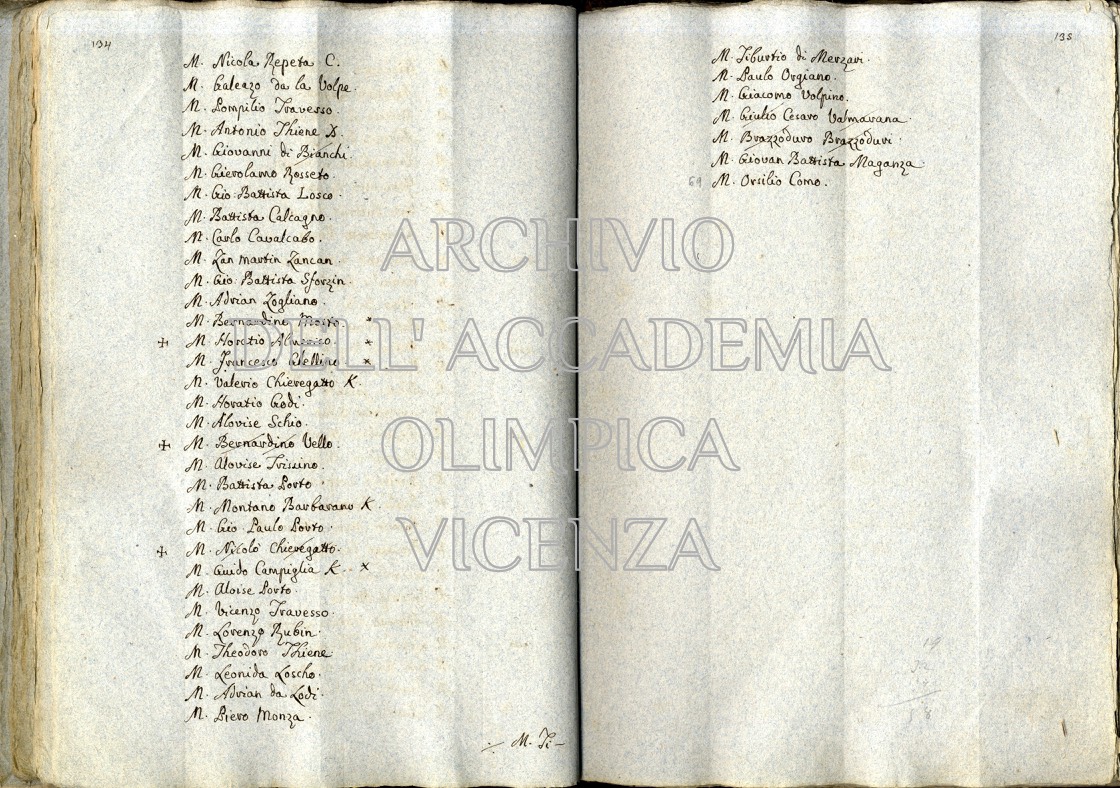 134
M. Nicola Repeta C.
M. Galeazo da la Volpe.
M. Pompilio Travesso.
M. Antonio Thiene
M. Giovanni di Bianchi.
M. Gierolamo Rosseto.
M. Gio: Battista Losco.
M. Battista Calcagno.
M. Carlo Cavalcabo.
M. Zan Martin Zancan.
M. Gio: Battista Sforzin.
M. Adrian Zogliano.
M. Bernardino Mosto. ×
✠ M. Horatio Almerico. ×
M. Francesco Ghellino ×
M. Valerio Chieregatto K.
M. Horatio Godi.
M. Alovise Schio.
✠ M. Bernardino Vello.
M. Alovise Trissino.
M. Battista Porto
M. Montano Barbarano K.
M. Gio Paulo Porto.
✠ M. Nicolò Chieregatto.
M. Guido Campiglia K. ×
M. Aloise Porto.
M. Vicenzo Travesso.
M. Lorenzo Rubin.
M. Theodoro Thiene.
M. Leonida Loscho.
M. Adrian da Lodi.
M. Piero Monza.
M. Ti-
135
M. Tiburtio di Merzari.
M. Paulo Orgiano.
M. Giacomo Volpino.
M. Giulio Cesaro Valmarana.
M. Brazzoduro Brazzoduri.
M. Giovan Battista Maganza
69 M. Orsilio Como.
ARCHIVIO
DELL'ACCADEMIA
OLIMPICA
VICENZA